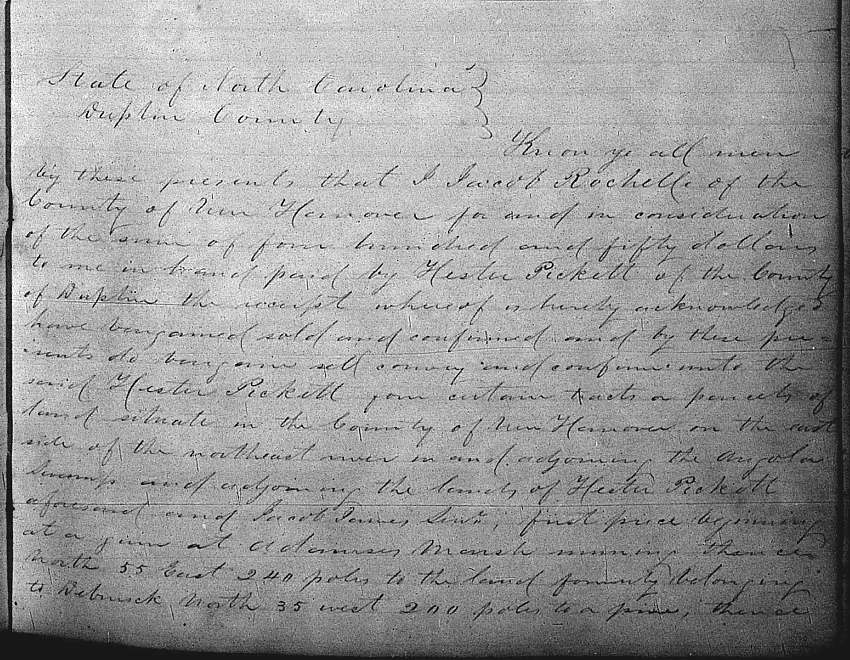 State of North Carolina
Duplin County
Know ye all men
by these presents that I Jacob Rochelle of the
County of New Hanover for and in consideration
of the sum of four hundred and fifty dollars
to me in hand paid by Hester Pickett of the County
of Duplin the receipt whereof is hereby acknowledged
have bargained sold and confirmed and by these pre-
sents do bargain sell convey and confirm unto the
said Hester Pickett four certain tracts or parcels of
land situate in the County of New Hanover on the east
side of the northeast river in and adjoining the Angola
Swamp and adjoining the lands of Hester Pickett
aforesaid and Jacob James Senr, first piece beginning
at a pine at Adamses Marsh running thence
North 55 East 240 poles to the land formerly belonging
to Debrusk North 35 west 200 poles to a pine, thence